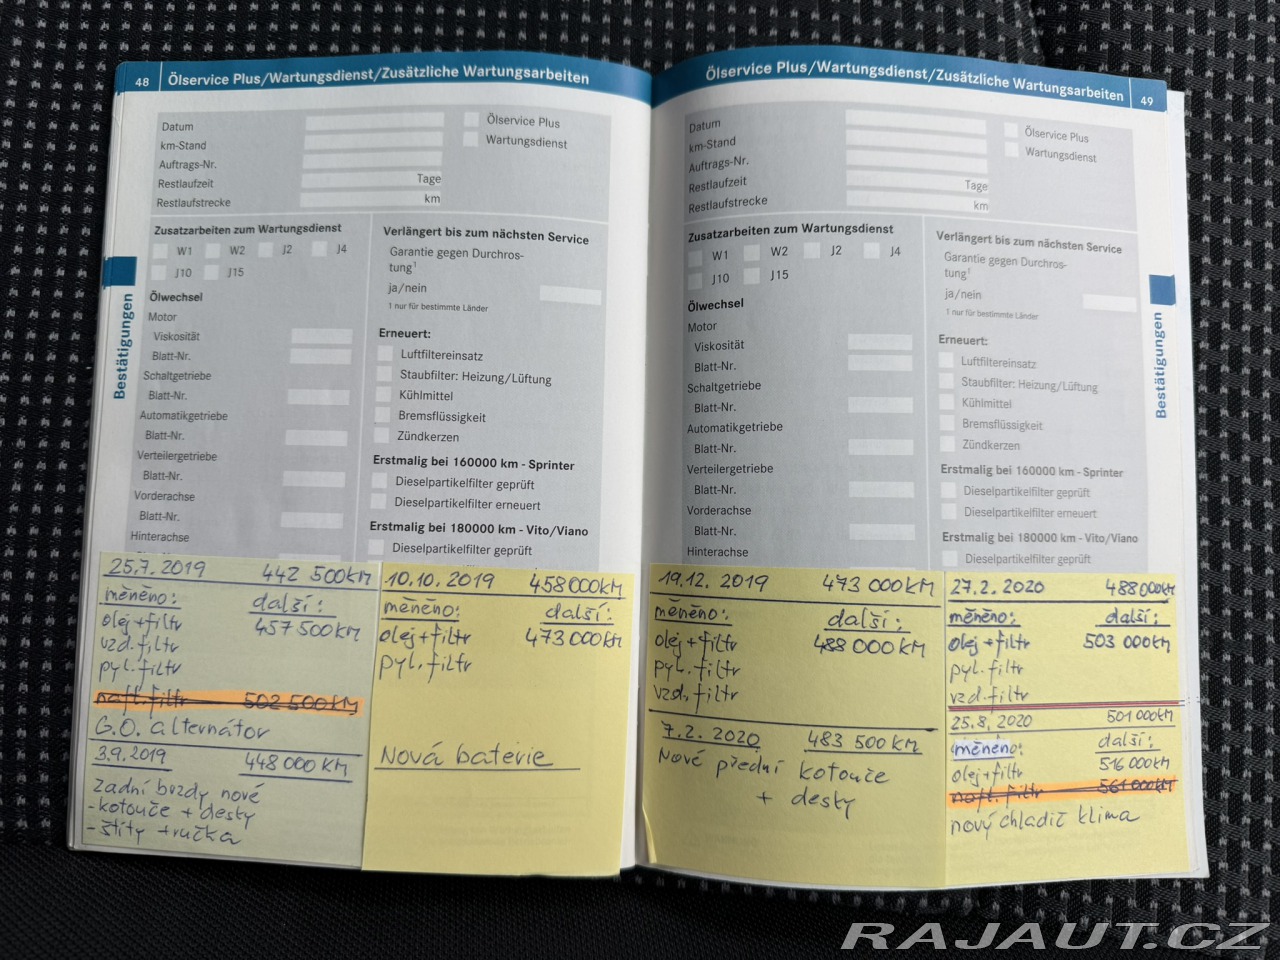 48 Ölservice Plus/Wartungsdienst/Zusätzliche Wartungsarbeiten
Datum
km-Stand
Auftrags-Nr.
Restlaufzeit Tage
Restlaufstrecke km
Ölservice Plus
Wartungsdienst
Zusatzarbeiten zum Wartungsdienst
W1 W2 J2 J4
J10 J15
Ölwechsel
Motor
Viskosität
Blatt-Nr.
Schaltgetriebe
Blatt-Nr.
Automatikgetriebe
Blatt-Nr.
Verteilergetriebe
Blatt-Nr.
Vorderachse
Blatt-Nr.
Hinterachse
Verlängert bis zum nächsten Service
Garantie gegen Durchros-
tung¹
ja/nein
1 nur für bestimmte Länder
Erneuert:
Luftfiltereinsatz
Staubfilter: Heizung/Lüftung
Kühlmittel
Bremsflüssigkeit
Zündkerzen
Erstmalig bei 160000 km - Sprinter
Dieselpartikelfilter geprüft
Dieselpartikelfilter erneuert
Erstmalig bei 180000 km - Vito/Viano
Dieselpartikelfilter geprüft
Bestätigungen
25.7.2019 442 500KM
měněno: další:
olej+filtr 457 500KM
vzd.filtr
pyl.filtr
naft.filtr 502 500KM
G.O. alternátor
3.9.2019 448 000 KM
Zadní brzdy nové
- kotouče + desky
- štíty + ručka
10.10.2019 458 000KM
měněno: další:
olej+filtr 473 000KM
pyl.filtr
Nová baterie
Ölservice Plus/Wartungsdienst/Zusätzliche Wartungsarbeiten 49
Datum
km-Stand
Auftrags-Nr.
Restlaufzeit Tage
Restlaufstrecke km
Ölservice Plus
Wartungsdienst
Zusatzarbeiten zum Wartungsdienst
W1 W2 J2 J4
J10 J15
Ölwechsel
Motor
Viskosität
Blatt-Nr.
Schaltgetriebe
Blatt-Nr.
Automatikgetriebe
Blatt-Nr.
Verteilergetriebe
Blatt-Nr.
Vorderachse
Blatt-Nr.
Hinterachse
Verlängert bis zum nächsten Service
Garantie gegen Durchros-
tung¹
ja/nein
1 nur für bestimmte Länder
Erneuert:
Luftfiltereinsatz
Staubfilter: Heizung/Lüftung
Kühlmittel
Bremsflüssigkeit
Zündkerzen
Erstmalig bei 160000 km - Sprinter
Dieselpartikelfilter geprüft
Dieselpartikelfilter erneuert
Erstmalig bei 180000 km - Vito/Viano
Dieselpartikelfilter geprüft
Bestätigungen
19.12. 2019 473 000KM
měněno: další:
olej+filtr 488 000KM
pyl.filtr
vzd.filtr
7.2. 2020 483 500KM
Nové přední kotouče
+ desky
27.2. 2020 488 000KM
měněno: další:
olej+filtr 503 000KM
pyl.filtr
vzd.filtr
25.8. 2020 501 000KM
měněno: další:
olej+filtr 516 000KM
naft.filtr 561 000KM
nový chladič klima
RAJAUT.CZ